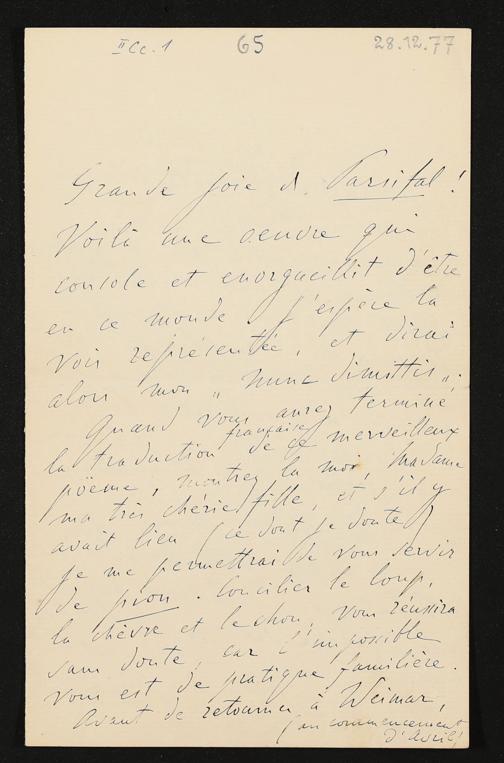 II Cc. 1 65 28.12.77
Grande joie d. Parsifal!
Voilà une oeuvre qui
console et enorgueillit d'être
en ce monde. J'espère la
voir représentée, et dirai
alors mon „nunc dimittis„;
Quand vous aurez terminé
la traduction française de ce merveilleux
poëme, montrez la moi, Madame
ma très chérie fille, et s'il y
avait lieu (ce dont je doute)
je me permettrai de vous servir
de pion. Concilier le loup,
la chèvre et le chou, vous réussira
sans doute, car l'impossible
vous est de pratique familière.
Avant de retourner à Weimar,
(au commencement
d'Avril)